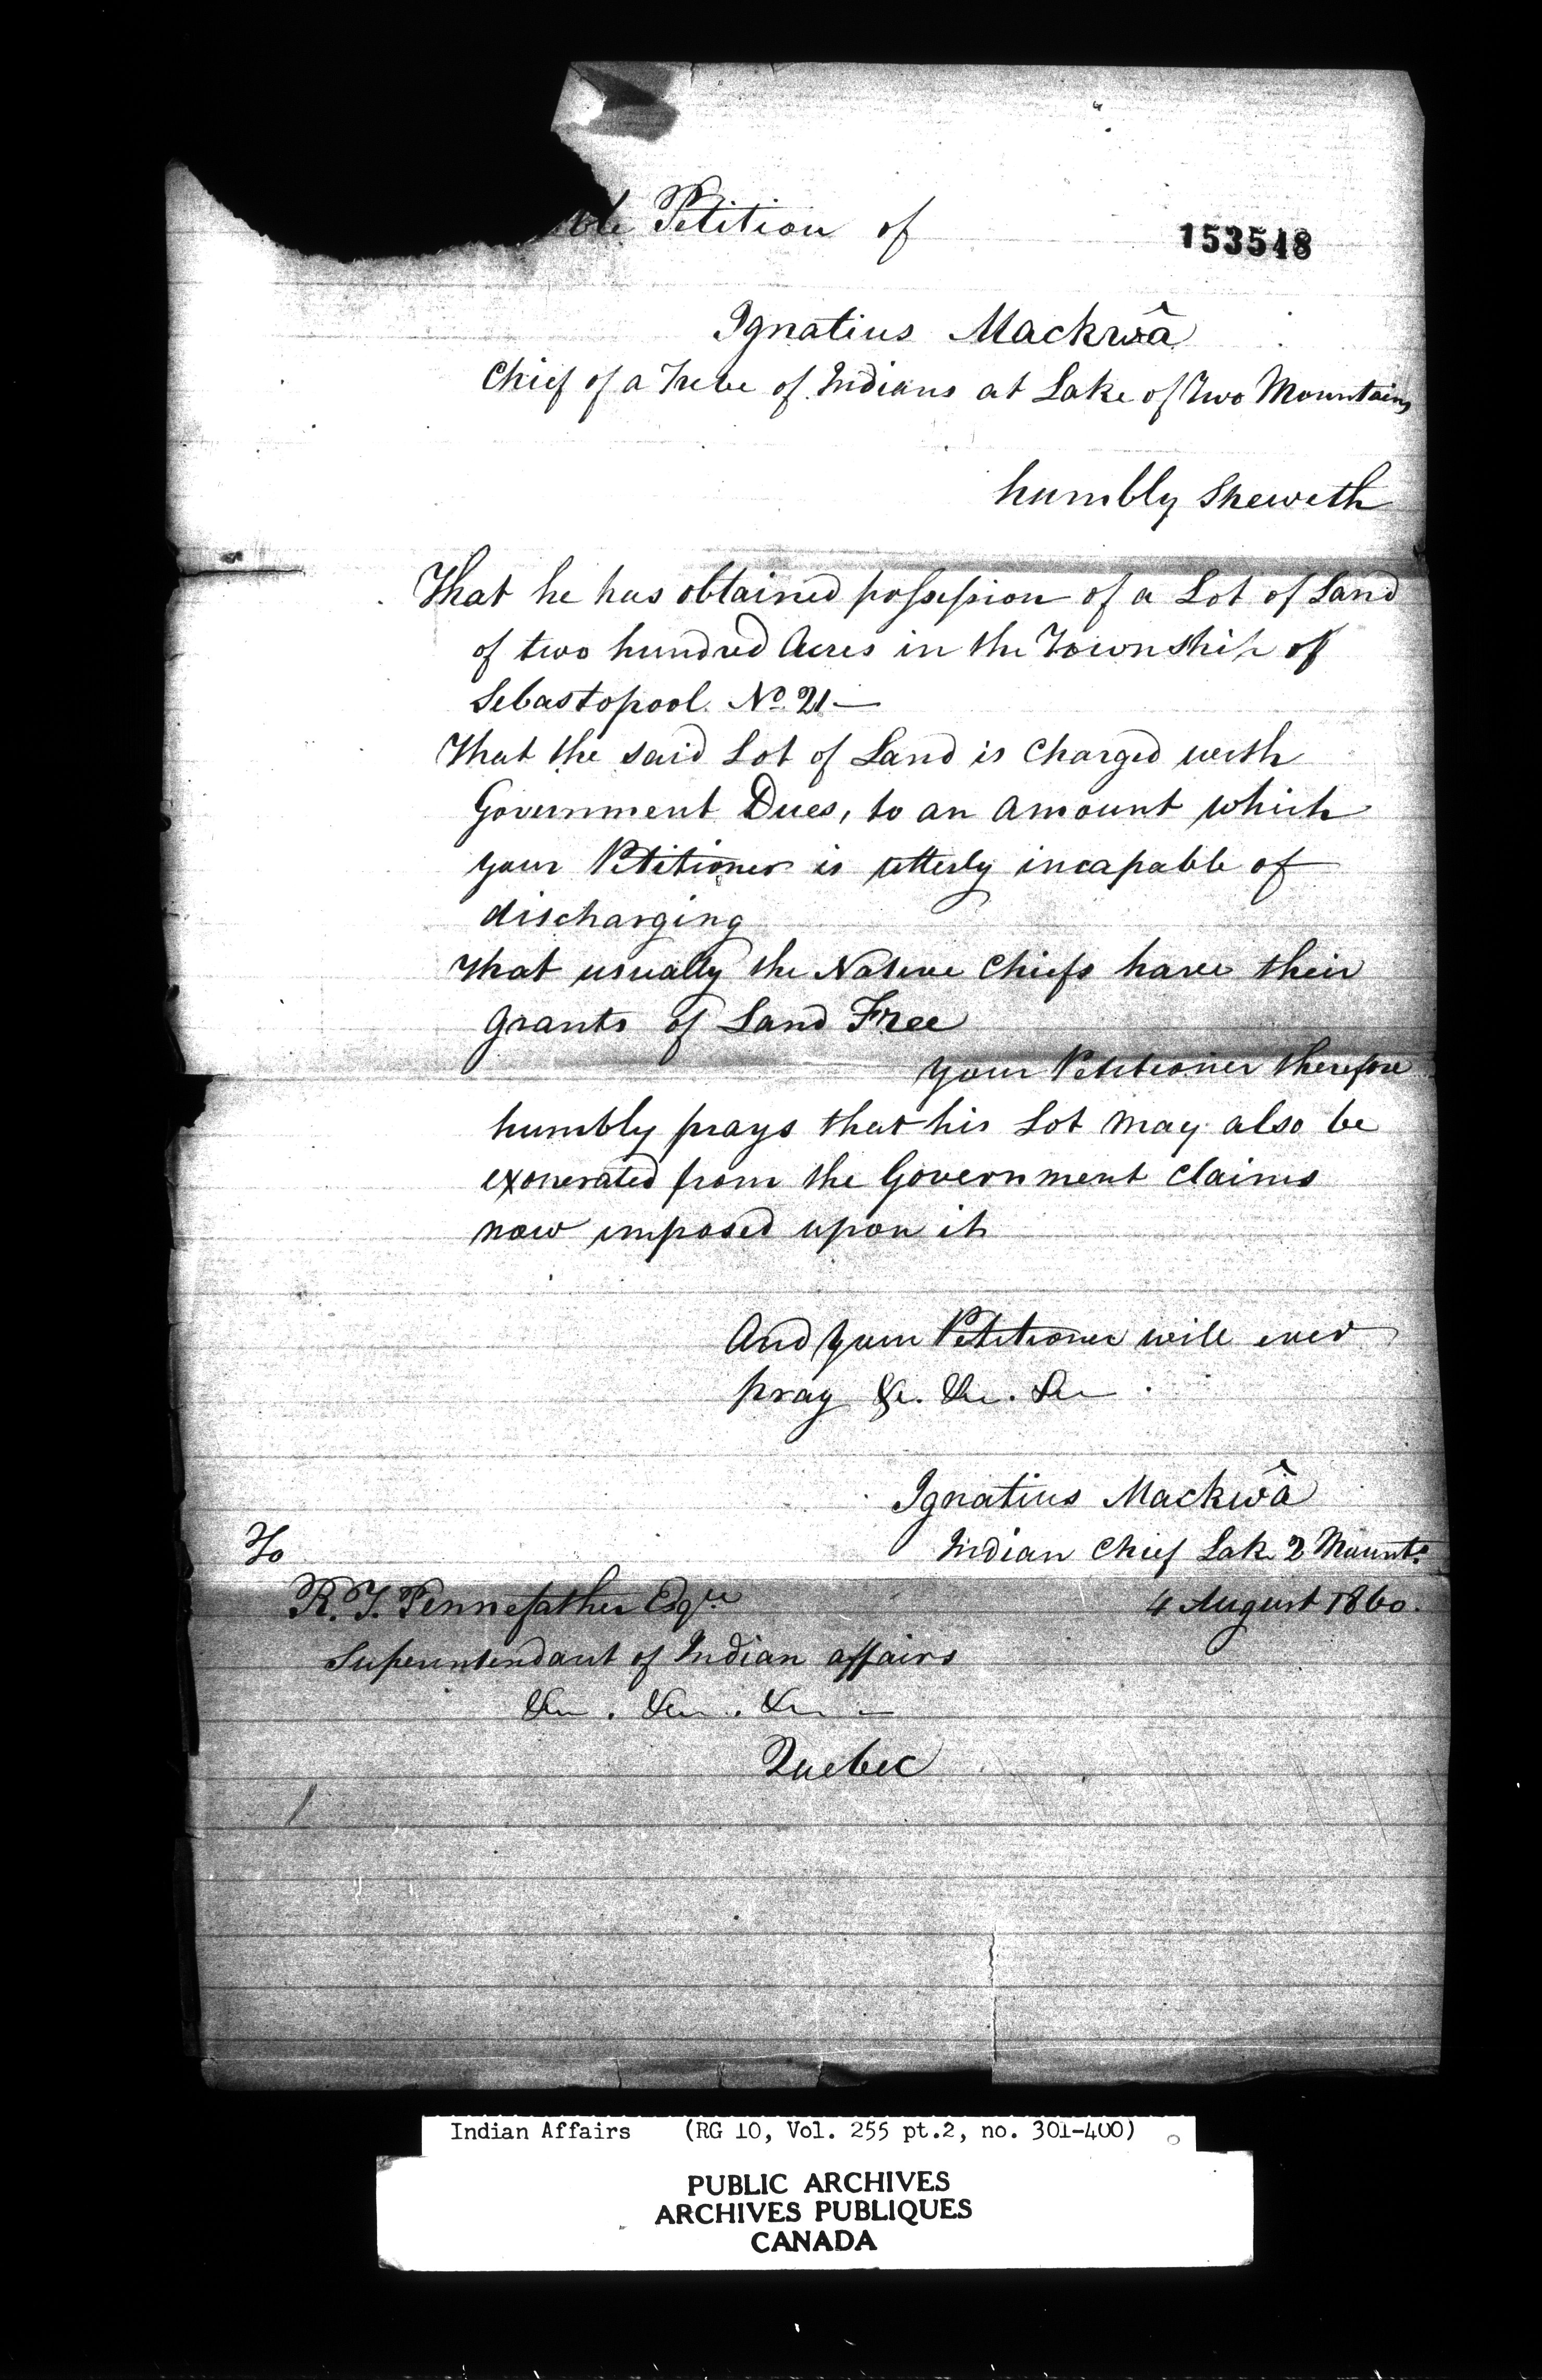 ble Petition of
153548
Ignatius Mackwâ
Chief of a Tribe of Indians at Lake of Two Mountains
humbly Sheweth
That he has obtained possession of a Lot of Land
of two hundred Acres in the Township of
Sebastopool. No. 21 —
That the said Lot of Land is Charged with
Government Dues, to an amount which
your Petitioner is utterly incapable of
discharging
That usually the Native Chiefs have their
grants of Land Free
your Petitioner therefore
humbly prays that his Lot may also be
exonerated from the Government Claims
now imposed upon it
And your Petitioner will ever
pray &c. &c. &c
Ignatius Mackwâ
To
Indian Chief Lak 2 Mounts.
R. T. Pennefather Esqre
4 August 1860.
Superintendant of Indian affairs
&c . &c . &c —
Quebec
Indian Affairs (RG 10, Vol. 255 pt.2, no. 301-400)
PUBLIC ARCHIVES
ARCHIVES PUBLIQUES
CANADA